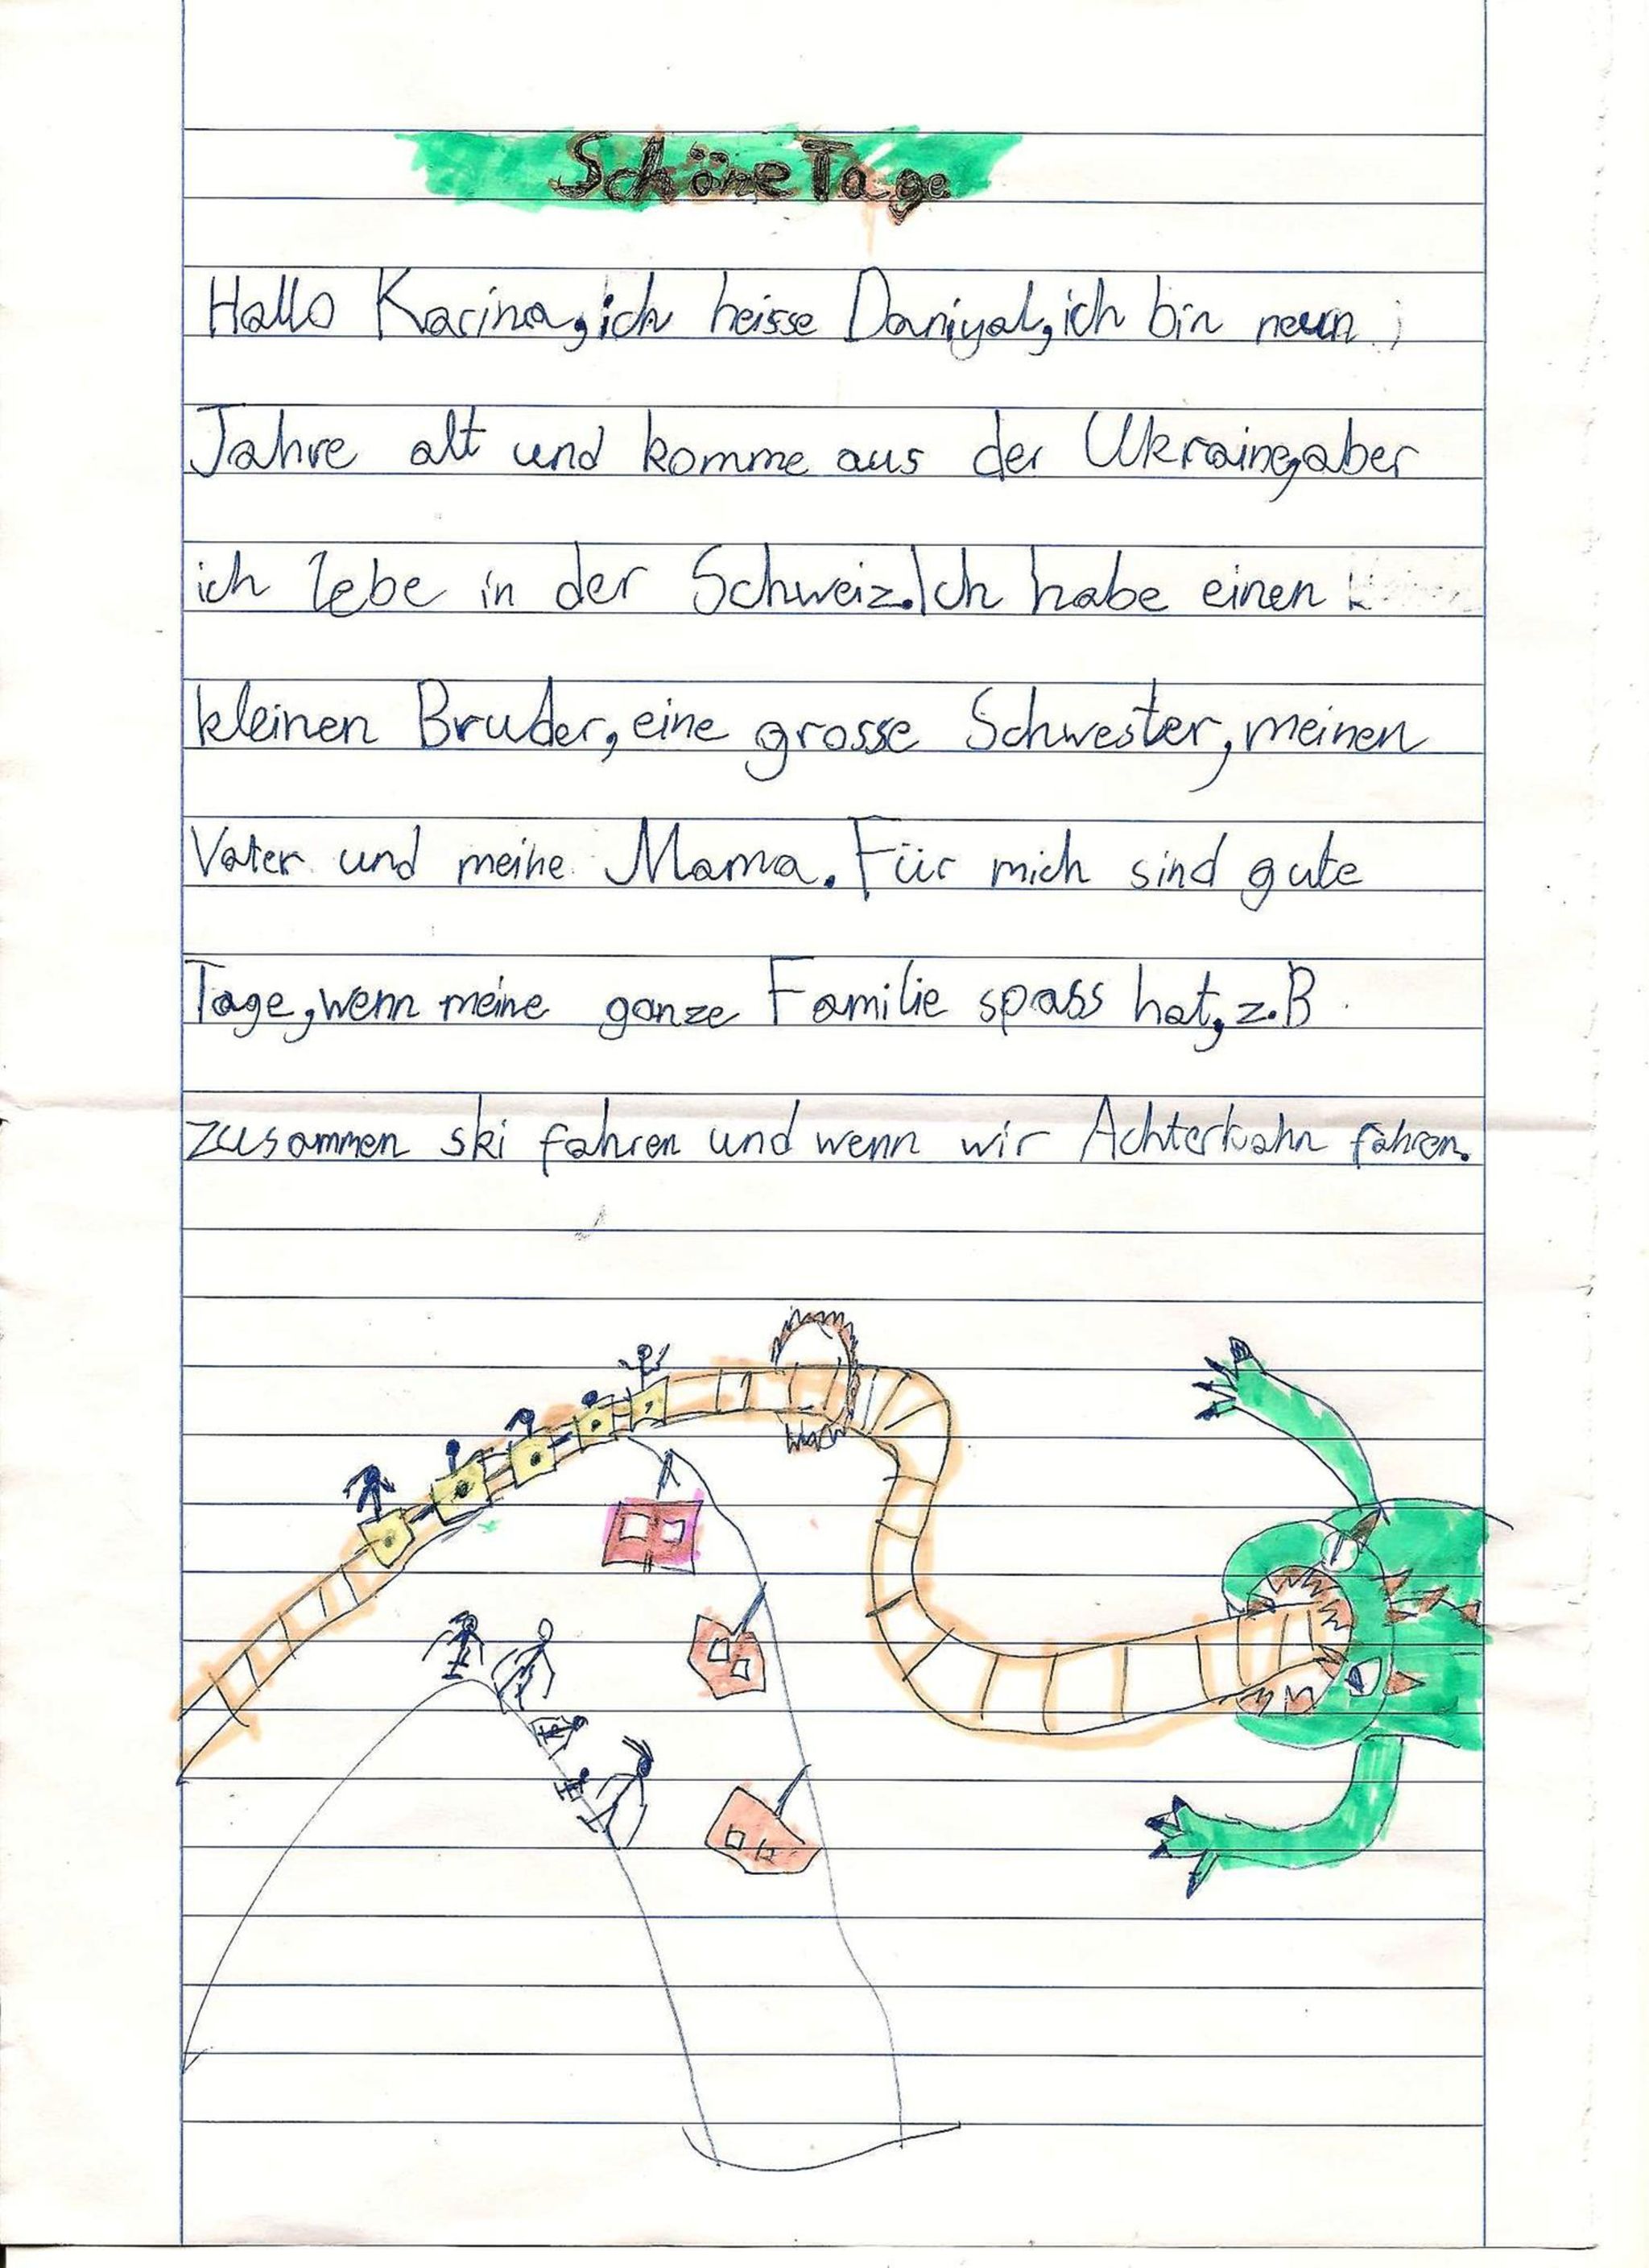 Schöne Tage
Hallo Karina, ich heisse Daniyal, ich bin neun
Jahre alt und komme aus der Ukraine, aber
ich lebe in der Schweiz. Ich habe einen
kleinen Bruder, eine grosse Schwester, meinen
Vater und meine Mama. Für mich sind gute
Tage, wenn meine ganze Familie spass hat, z.B
zusammen ski fahren und wenn wir Achterbahn fahren.